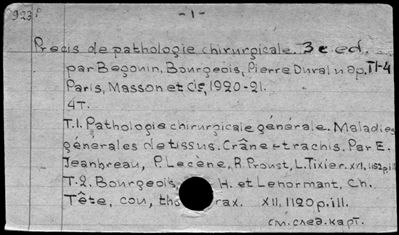 923 P
- 1 -
Précis de pathologie chirurgicale. 3e ed.
par Begonin, Bourgeois, Pierre Duval и др. П-4
Paris, Masson et Cie, 1920-21.
4т.
T.1. Pathologie chirurgicale générale. Maladies
générales de tissus. Crâne et rachis. Par E.
Jeanbreau, P. Lecène, R. Proust, L. Tixier. XVI, 1152 p. ill.
T-2. Bourgeois, H. et Lenormant, Ch.
Tête, cou, thorax. XII, 1120 p. ill.
см. след. карт.